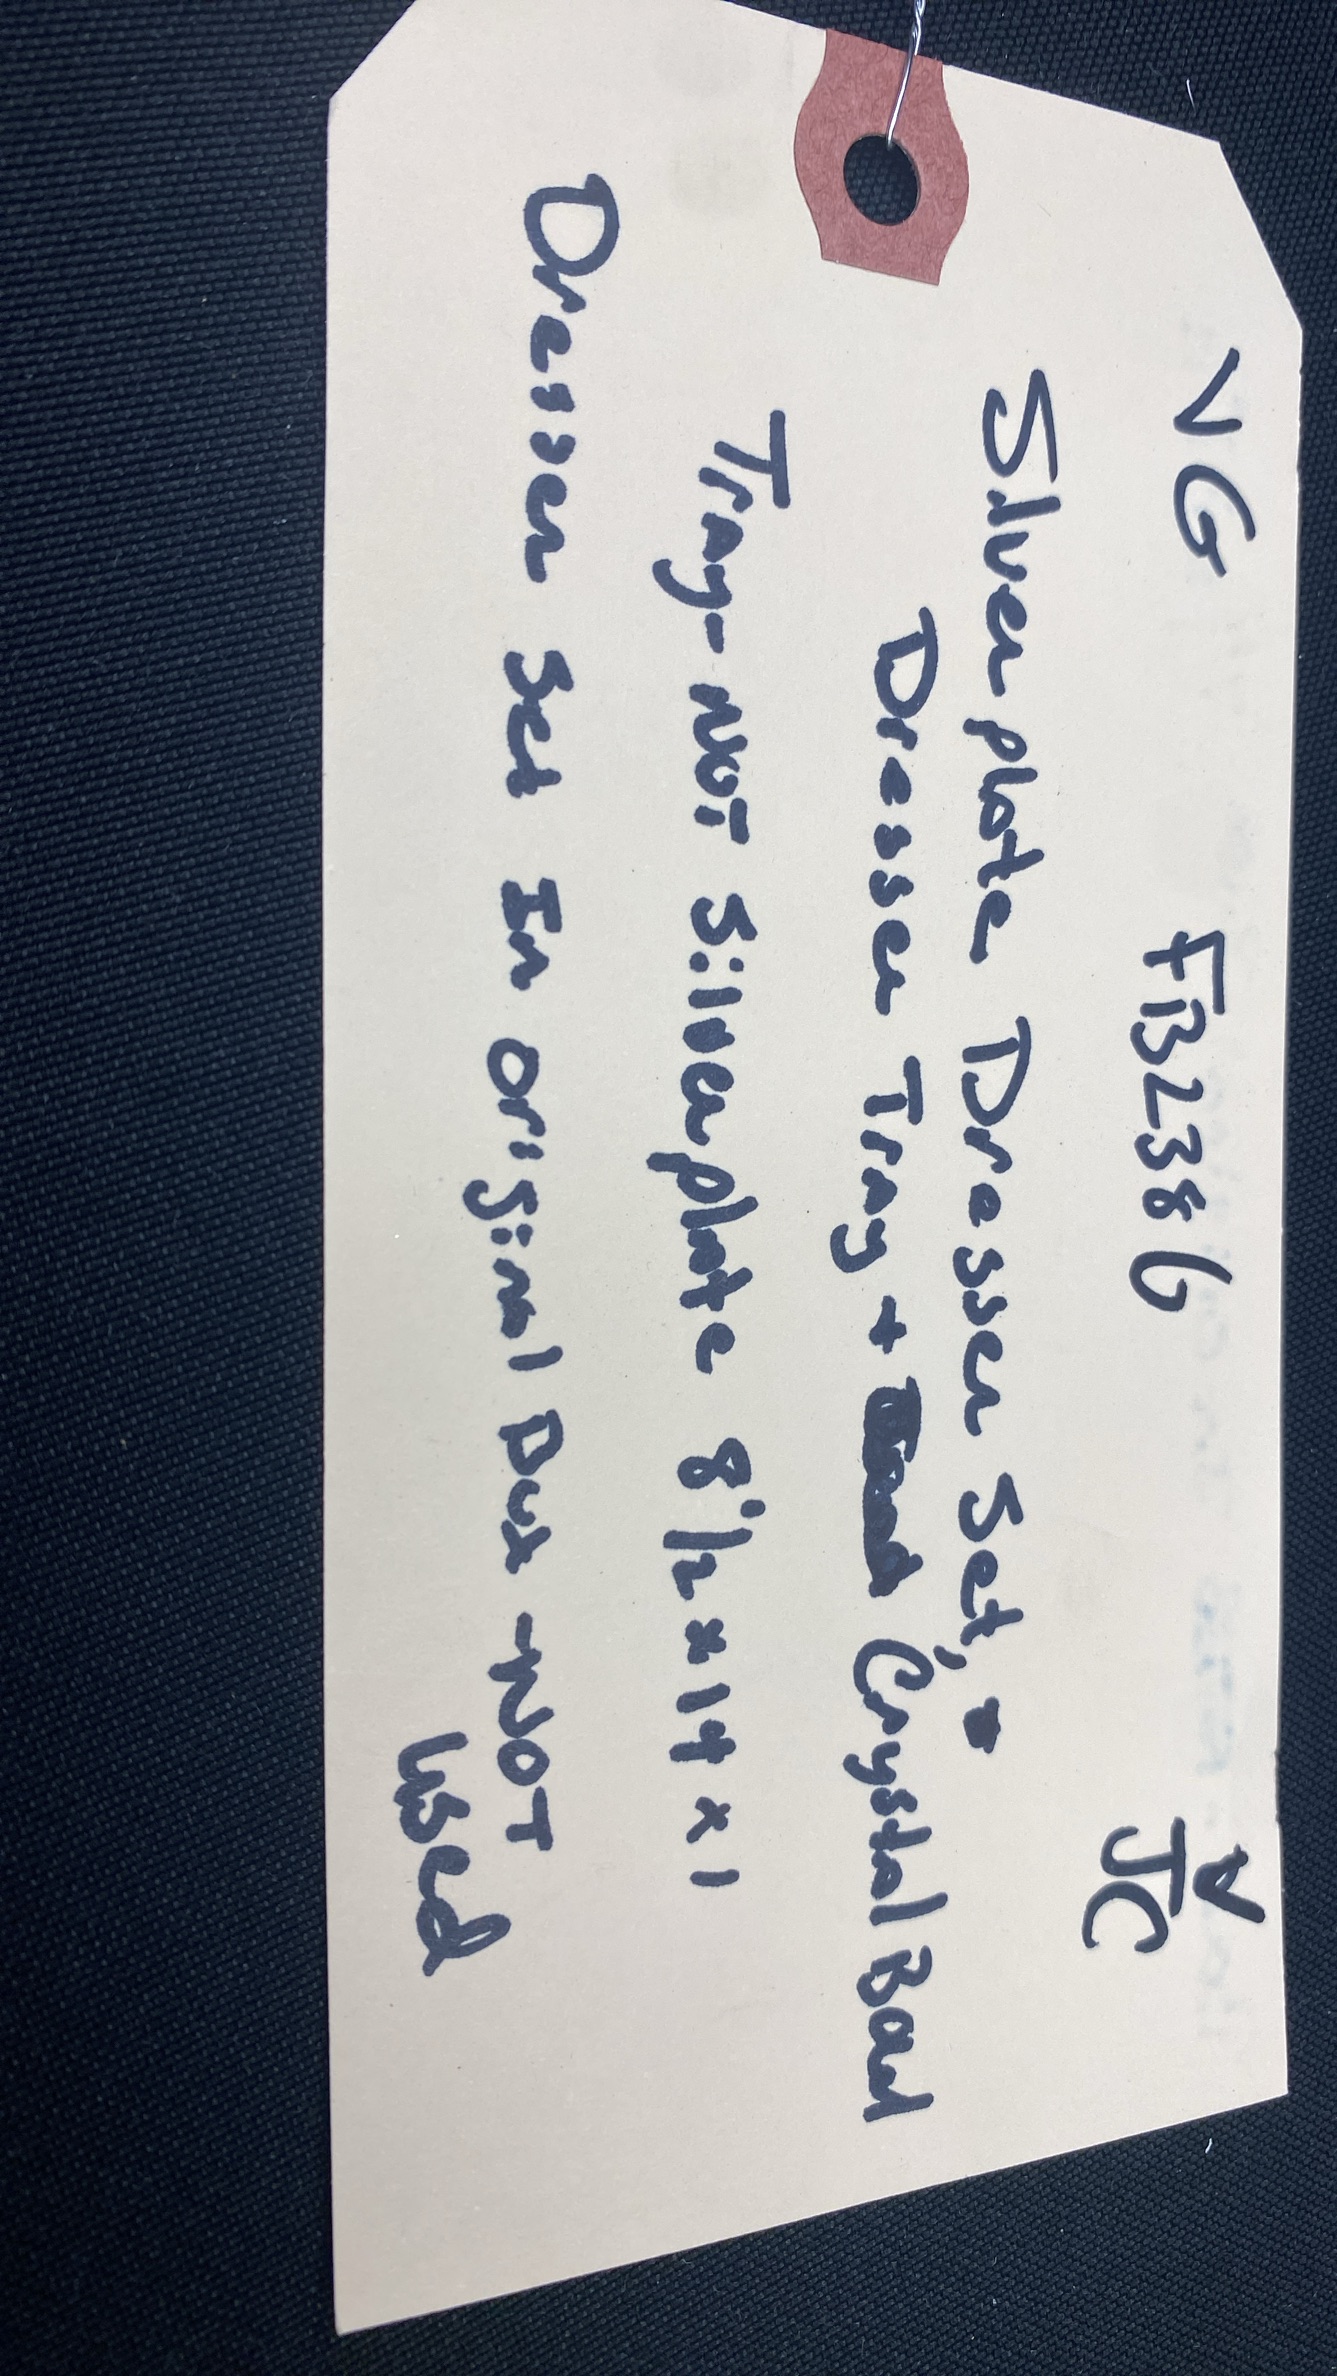 VG FB2386 JC
Silverplate Dresser Set,
Dresser Tray + Crystal Bowl
Tray - NOT Silverplate 8 1/2 x 14 x 1
Dresser Set In original Box - NOT
Used